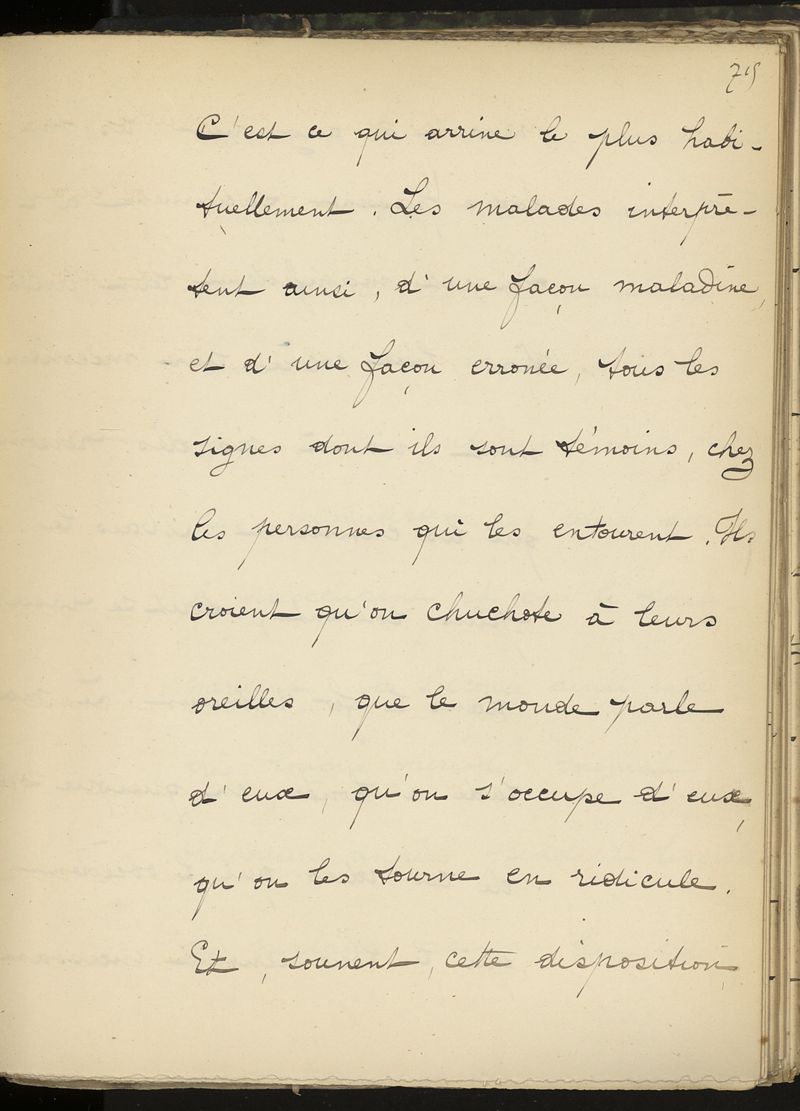 75
C'est ce qui arrive le plus habi-
tuellement. Les malades interprè-
tent ainsi, d'une façon maladive,
et d'une façon erronée, tous les
signes dont ils sont témoins, chez
les personnes qui les entourent. Ils
croient qu'on chuchote à leurs
oreilles, que le monde parle
d'eux, qu'on s'occupe d'eux,
qu'on les tourne en ridicule.
Et, souvent, cette disposition